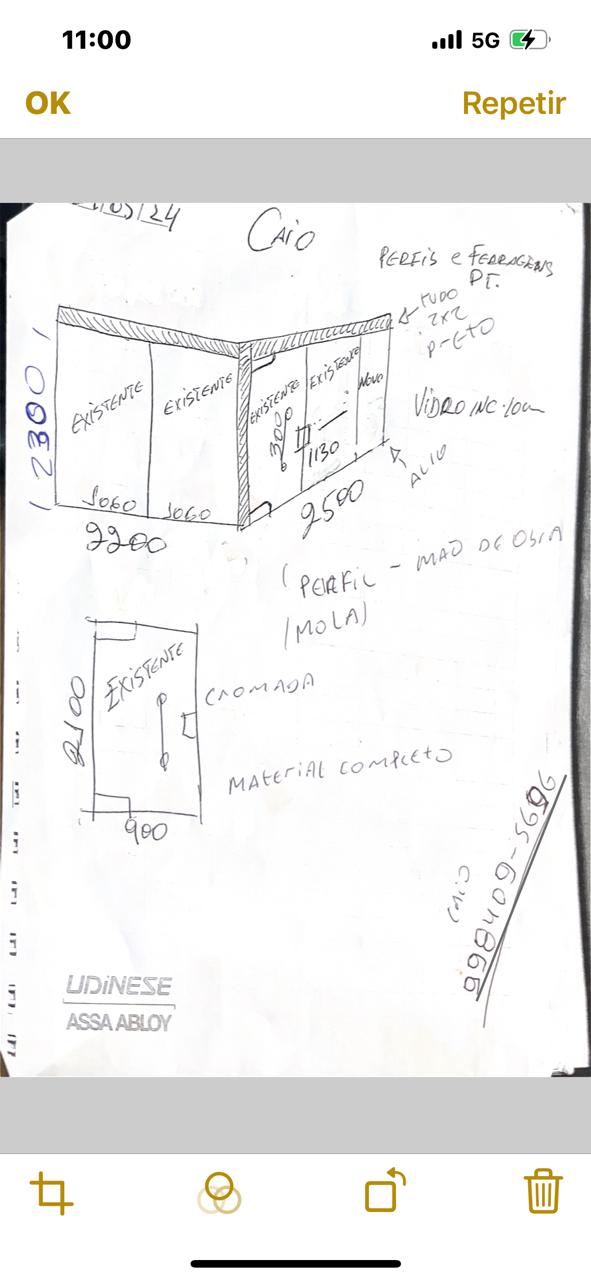 11:00
5G
OK
Repetir
/05/24
CAIO
PERFIS e FERRAGENS
PT.
TUDO
2x2
PRETO
EXISTENTE
EXISTENTE
EXISTENTE
EXISTENTE
NOVO
2300
300
1130
VIDRO INC. 10mm
1060
1060
2200
2500
PERFIL - MÃO DE OBRA
(MOLA)
EXISTENTE
2100
CROMADA
900
MATERIAL COMPLETO
CAIO
998409-5696
UDINESE
ASSA ABLOY